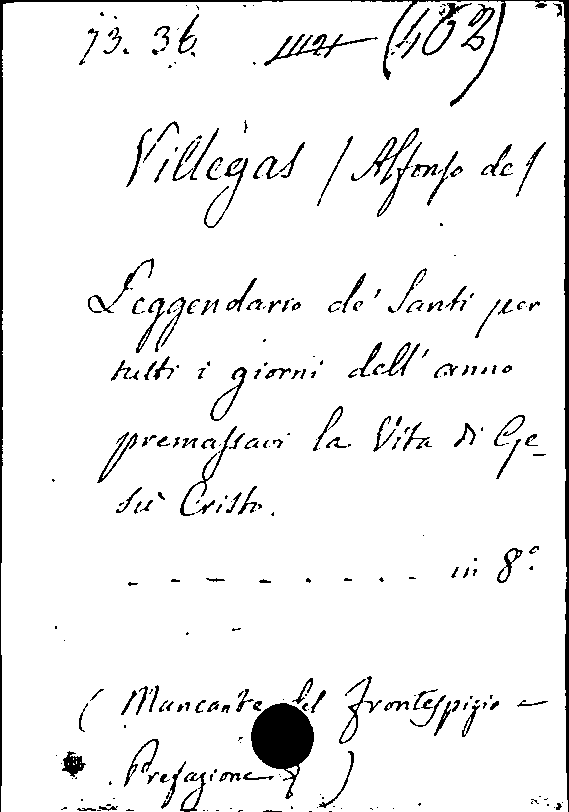 73. 36. (402)
Villegas / Alfonso de /
Leggendario de' Santi per
tutti i giorni dell' anno
premassavi la Vita di Ge-
sù Cristo.
- - - - - - - - - in 8°.
( Mancante del frontespizio -
Prefazione )